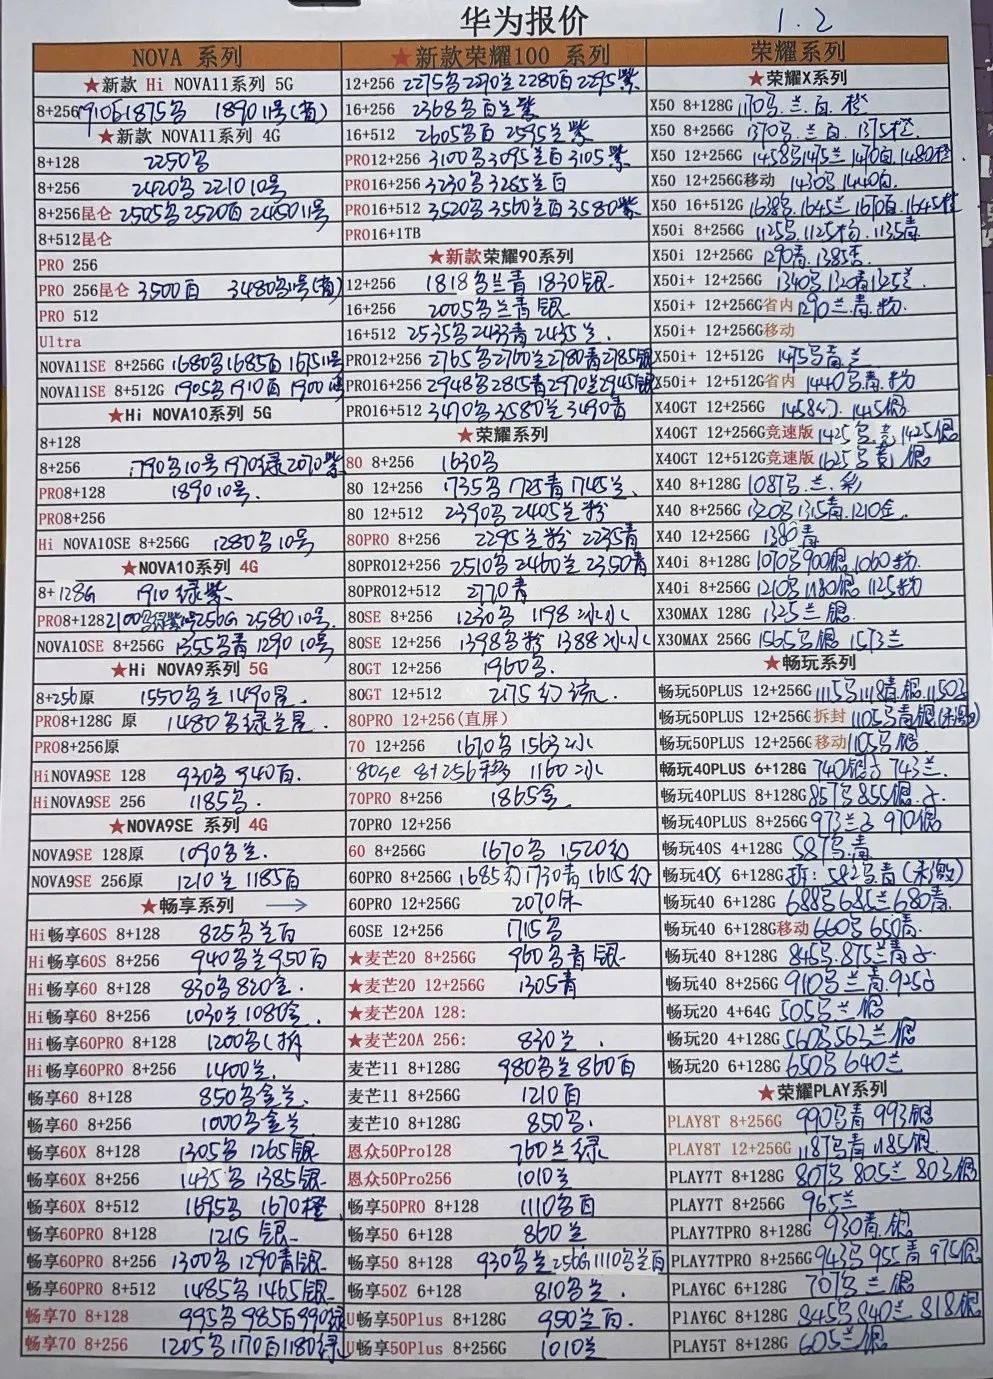 华为报价 1.2
NOVA 系列
★新款 Hi NOVA11系列 5G
8+256 1910百1875鸟 1890 11号(首)
★新款 NOVA11系列 4G
8+128 2250鸟
8+256 2420鸟 2210 10号
8+256昆仑 2505鸟 2520百 2450 11号
8+512昆仑
PRO 256
PRO 256昆仑 3500百 3480鸟11号(首)
PRO 512
Ultra
NOVA11SE 8+256G 1680鸟1685百 1675 11号
NOVA11SE 8+512G 1905鸟1910百1900
★Hi NOVA10系列 5G
8+128
8+256 1790鸟10号1970绿2070紫
PRO8+128 1890 10号.
PRO8+256
Hi NOVA10SE 8+256G 1280鸟10号
★NOVA10系列 4G
8+128G 1910 绿紫
PRO8+128 2100鸟绿紫 256G 2580 10号
NOVA10SE 8+256G 1355鸟青1290 10号
★Hi NOVA9系列 5G
8+256原 1550鸟兰1490星
PRO8+128G 原 1480鸟绿兰星
PRO8+256原
HiNOVA9SE 128 930鸟 940百.
HiNOVA9SE 256 1185鸟.
★NOVA9SE 系列 4G
NOVA9SE 128原 1090鸟兰.
NOVA9SE 256原 1210兰 1185百
★畅享系列 →
Hi畅享60S 8+128 825鸟兰百
Hi畅享60S 8+256 940鸟兰950百
Hi畅享60 8+128 830鸟820金.
Hi畅享60 8+256 1030兰1080金.
Hi畅享60PRO 8+128 1200鸟(拆
Hi畅享60PRO 8+256 1400兰.
畅享60 8+128 850鸟金兰.
畅享60 8+256 1000鸟金兰
畅享60X 8+128 1305鸟 1265银.
畅享60X 8+256 1435鸟 1385银.
畅享60X 8+512 1695鸟 1670橙
畅享60PRO 8+128 1215 银.
畅享60PRO 8+256 1300鸟1290青银
畅享60PRO 8+512 1485鸟1465银
畅享70 8+128 995鸟985百990绿
畅享70 8+256 1205鸟1170百1180绿
★新款荣耀100 系列
12+256 2275鸟2270兰2280百2295紫
16+256 2368鸟百兰紫
16+512 2605鸟百 2595兰紫
PRO12+256 3100鸟3095兰百3105紫
PRO16+256 3230鸟3265兰百
PRO16+512 3520鸟3560兰百3580紫
PRO16+1TB
★新款荣耀90系列
12+256 1818鸟兰青1830银
16+256 2005鸟兰青银
16+512 2535鸟2433青2435兰.
PRO12+256 2765鸟2760兰2780青2785银
PRO16+256 2948鸟2815青2970兰2945银
PRO16+512 3470鸟3580兰3490青
★荣耀系列
80 8+256 1630鸟
80 12+256 1735鸟1725青1745兰.
80 12+512 2390鸟2405兰粉
80PRO 8+256 2295兰粉 2235青
80PRO12+256 2510鸟2460兰2350青
80PRO12+512 2770青
80SE 8+256 1230鸟 1198 冰
80SE 12+256 1398鸟粉 1388 冰
80GT 12+256 1960鸟.
80GT 12+512 2175幻流.
80PRO 12+256(直屏)
70 12+256 1670鸟 1563冰
80se 8+256移 1160冰
70PRO 8+256 1865金
70PRO 12+256
60 8+256G 1670鸟 1520幻
60PRO 8+256G 1685幻1730青1615幻
60PRO 12+256G 2070
60SE 12+256 1715鸟
★麦芒20 8+256G 960鸟青银
★麦芒20 12+256G 1305青
★麦芒20A 128:
★麦芒20A 256: 830兰.
麦芒11 8+128G 980鸟兰860百
麦芒11 8+256G 1210百
麦芒10 8+128G 850鸟.
恩众50Pro128 760兰绿
恩众50Pro256 1010兰
畅享50PRO 8+128 1110鸟百
畅享50 6+128 860兰
畅享50 8+128 930鸟兰256G 1110鸟兰百
畅享50Z 6+128 810鸟兰.
U畅享50Plus 8+128G 950兰百.
U畅享50Plus 8+256G 1010兰
荣耀系列
★荣耀X系列
X50 8+128G 1170鸟.兰.百.橙
X50 8+256G 1370鸟.兰.百.1375橙.
X50 12+256G 1458鸟1475兰1470百.1480橙.
X50 12+256G移动 1430鸟1440百.
X50 16+512G 1638鸟.1645兰.1670百.1645橙
X50i 8+256G 1125鸟.1125粉.1135青
X50i 12+256G 1290青.1385杏.
X50i+ 12+256G 1340鸟1320青1325兰
X50i+ 12+256G省内 1290兰.青.粉
X50i+ 12+256G移动
X50i+ 12+512G 1475鸟青.兰
X50i+ 12+512G省内 1440鸟青.粉
X40GT 12+256G 1458幻.1445银.
X40GT 12+256G竞速版 1425鸟.竞.1425银
X40GT 12+512G竞速版 1625鸟竞.银
X40 8+128G 1087鸟.兰.彩
X40 8+256G 1320鸟1315青.1210金.
X40 12+256G 1380青
X40i 8+128G 1070鸟900银.1060粉.
X40i 8+256G 1210鸟1180银1125粉
X30MAX 128G 1325兰.银.
X30MAX 256G 1565鸟银 1573兰
★畅玩系列
畅玩50PLUS 12+256G 1115鸟1118青.银.1150
畅玩50PLUS 12+256G拆封 1105鸟青银(未激)
畅玩50PLUS 12+256G移动 1105鸟银.
畅玩40PLUS 6+128G 740银 743兰.
畅玩40PLUS 8+128G 857鸟855银.
畅玩40PLUS 8+256G 973兰 970银
畅玩40S 4+128G 587鸟.青
畅玩40S 6+128G 拆:582鸟青(未激)
畅玩40 6+128G 688鸟685兰680青.
畅玩40 6+128G移动 660鸟650青.
畅玩40 8+128G 845鸟.875兰青
畅玩40 8+256G 910鸟兰青.925
畅玩20 4+64G 505鸟兰银
畅玩20 4+128G 560鸟563兰银
畅玩20 6+128G 650鸟640兰
★荣耀PLAY系列
PLAY8T 8+256G 990鸟青 993银
PLAY8T 12+256G 1187鸟青1185银.
PLAY7T 8+128G 807鸟805兰803银
PLAY7T 8+256G 965兰
PLAY7TPRO 8+128G 930青.银.
PLAY7TPRO 8+256G 943鸟955青975银
PLAY6C 6+128G 707鸟兰银
PlAY6C 8+128G 845鸟840兰.818银.
PLAY5T 8+128G 605兰银